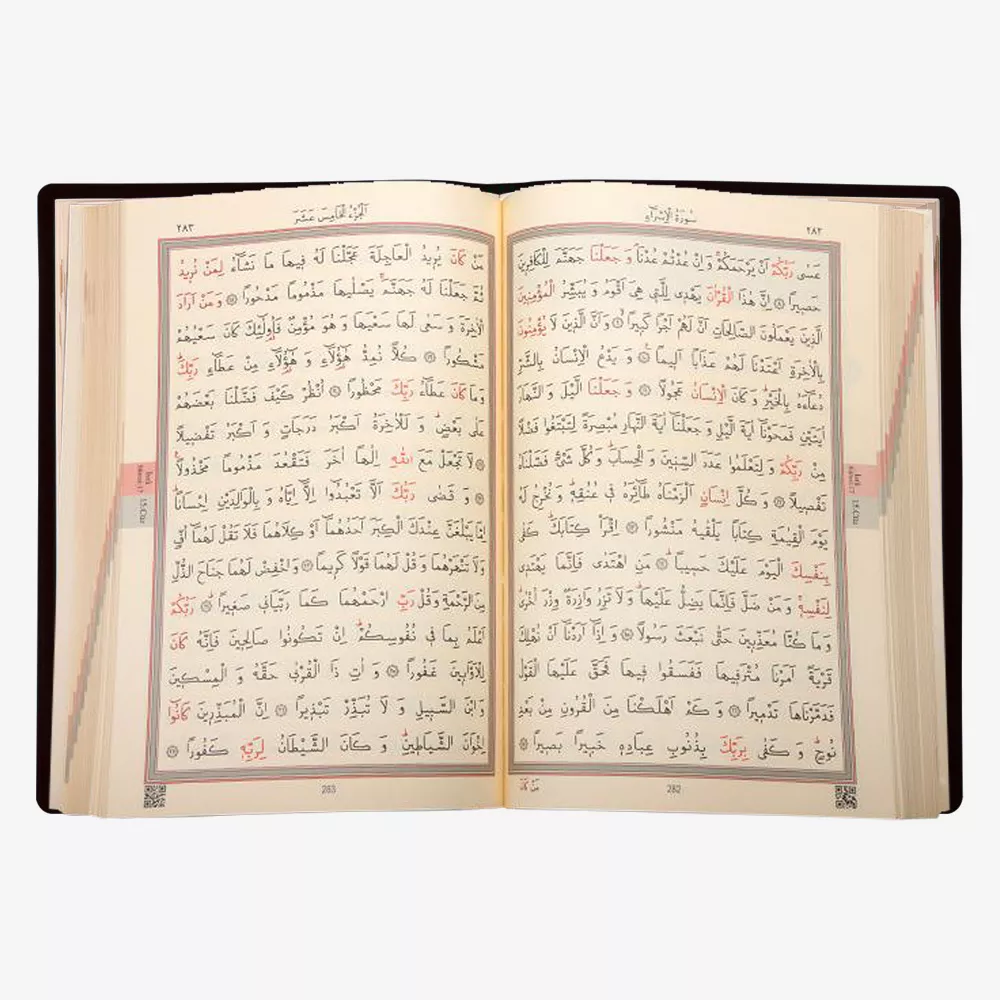 سُورَةُ الْاِسْرَاءِ
٢٨٢
عَسٰى رَبُّكُمْ اَنْ يَرْحَمَكُمْۚ وَاِنْ عُدْتُمْ عُدْنَاۢ وَجَعَلْنَا جَهَنَّمَ لِلْكَافِرِينَ
حَصِيرًا ﴿٨﴾ اِنَّ هٰذَا الْقُرْاٰنَ يَهْدِى لِلَّتِى هِىَ اَقْوَمُ وَ يُبَشِّرُ الْمُؤْمِنِينَ
الَّذِينَ يَعْمَلُونَ الصَّالِحَاتِ اَنَّ لَهُمْ اَجْرًا كَبِيرًاۙ ﴿٩﴾ وَاَنَّ الَّذِينَ لَا يُؤْمِنُونَ
بِالْاٰخِرَةِ اَعْتَدْنَا لَهُمْ عَذَابًا اَلِيمًا۟ ﴿١٠﴾ وَ يَدْعُ الْاِنْسَانُ بِالشَّرِّ
دُعَٓاءَهُ بِالْخَيْرِۜ وَ كَانَ الْاِنْسَانُ عَجُولًا ﴿١١﴾ وَ جَعَلْنَا الَّيْلَ وَ النَّهَارَ
اٰيَتَيْنِ فَمَحَوْنَٓا اٰيَةَ الَّيْلِ وَ جَعَلْنَٓا اٰيَةَ النَّهَارِ مُبْصِرَةً لِتَبْتَغُوا فَضْلًا
مِنْ رَبِّكُمْ وَ لِتَعْلَمُوا عَدَدَ السِّنِينَ وَ الْحِسَابَۜ وَ كُلَّ شَىْءٍ فَصَّلْنَاهُ
تَفْصِيلًا ﴿١٢﴾ وَ كُلَّ اِنْسَانٍ اَلْزَمْنَاهُ طَٓائِرَهُ فِى عُنُقِهِۜ وَ نُخْرِجُ لَهُ
يَوْمَ الْقِيٰمَةِ كِتَابًا يَلْقٰيهُ مَنْشُورًا ﴿١٣﴾ اِقْرَأْ كِتَابَكَۜ كَفٰى
بِنَفْسِكَ الْيَوْمَ عَلَيْكَ حَسِيبًاۜ ﴿١٤﴾ مَنِ اهْتَدٰى فَاِنَّمَا يَهْتَدِى
لِنَفْسِهِۚ وَ مَنْ ضَلَّ فَاِنَّمَا يَضِلُّ عَلَيْهَاۜ وَ لَا تَزِرُ وَازِرَةٌ وِزْرَ اُخْرٰىۜ
وَ مَا كُنَّا مُعَذِّبِينَ حَتّٰى نَبْعَثَ رَسُولًا ﴿١٥﴾ وَ اِذَٓا اَرَدْنَٓا اَنْ نُهْلِكَ
قَرْيَةً اَمَرْنَا مُتْرَفِيهَا فَفَسَقُوا فِيهَا فَحَقَّ عَلَيْهَا الْقَوْلُ
فَدَمَّرْنَاهَا تَدْمِيرًا ﴿١٦﴾ وَ كَمْ اَهْلَكْنَا مِنَ الْقُرُونِ مِنْ بَعْدِ
نُوحٍۜ وَ كَفٰى بِرَبِّكَ بِذُنُوبِ عِبَادِهِ خَبِيرًا بَصِيرًا ﴿١٧﴾
مَنْ كَانَ
282
اَلْجُزْءُ الْخَامِسَ عَشَرَ
٢٨٣
مَنْ كَانَ يُرِيدُ الْعَاجِلَةَ عَجَّلْنَا لَهُ فِيهَا مَا نَشَٓاءُ لِمَنْ نُرِيدُ
ثُمَّ جَعَلْنَا لَهُ جَهَنَّمَۚ يَصْلٰيهَا مَذْمُومًا مَدْحُورًا ﴿١٨﴾ وَ مَنْ اَرَادَ
الْاٰخِرَةَ وَ سَعٰى لَهَا سَعْيَهَا وَ هُوَ مُؤْمِنٌ فَاُو۬لٰٓئِكَ كَانَ سَعْيُهُمْ
مَشْكُورًا ﴿١٩﴾ كُلًّا نُمِدُّ هٰٓؤُ۬لَٓاءِ وَ هٰٓؤُ۬لَٓاءِ مِنْ عَطَٓاءِ رَبِّكَۜ
وَمَا كَانَ عَطَٓاءُ رَبِّكَ مَحْظُورًا ﴿٢٠﴾ اُنْظُرْ كَيْفَ فَضَّلْنَا بَعْضَهُمْ
عَلٰى بَعْضٍۜ وَ لَلْاٰخِرَةُ اَكْبَرُ دَرَجَاتٍ وَ اَكْبَرُ تَفْضِيلًا
﴿٢١﴾ لَا تَجْعَلْ مَعَ اللّٰهِ اِلٰهًا اٰخَرَ فَتَقْعُدَ مَذْمُومًا مَخْذُولًا۟
﴿٢٢﴾ وَ قَضٰى رَبُّكَ اَلَّا تَعْبُدُٓوا اِلَّٓا اِيَّاهُ وَ بِالْوَالِدَيْنِ اِحْسَانًاۜ
اِمَّا يَبْلُغَنَّ عِنْدَكَ الْكِبَرَ اَحَدُهُمَٓا اَوْ كِلَاهُمَا فَلَا تَقُلْ لَهُمَٓا اُفٍّ
وَلَا تَنْهَرْهُمَا وَ قُلْ لَهُمَا قَوْلًا كَرِيمًا ﴿٢٣﴾ وَاخْفِضْ لَهُمَا جَنَاحَ الذُّلِّ
مِنَ الرَّحْمَةِ وَ قُلْ رَبِّ ارْحَمْهُمَا كَمَا رَبَّيَانِى صَغِيرًاۜ ﴿٢٤﴾ رَبُّكُمْ
اَعْلَمُ بِمَا فِى نُفُوسِكُمْۜ اِنْ تَكُونُوا صَالِحِينَ فَاِنَّهُ كَانَ
لِلْاَوَّابِينَ غَفُورًا ﴿٢٥﴾ وَ اٰتِ ذَا الْقُرْبٰى حَقَّهُ وَ الْمِسْكِينَ
وَابْنَ السَّبِيلِ وَ لَا تُبَذِّرْ تَبْذِيرًا ﴿٢٦﴾ اِنَّ الْمُبَذِّرِينَ كَانُٓوا
اِخْوَانَ الشَّيَاطِينِۜ وَ كَانَ الشَّيْطَانُ لِرَبِّهِ كَفُورًا ﴿٢٧﴾
283
15.Cüz
15.Cüz